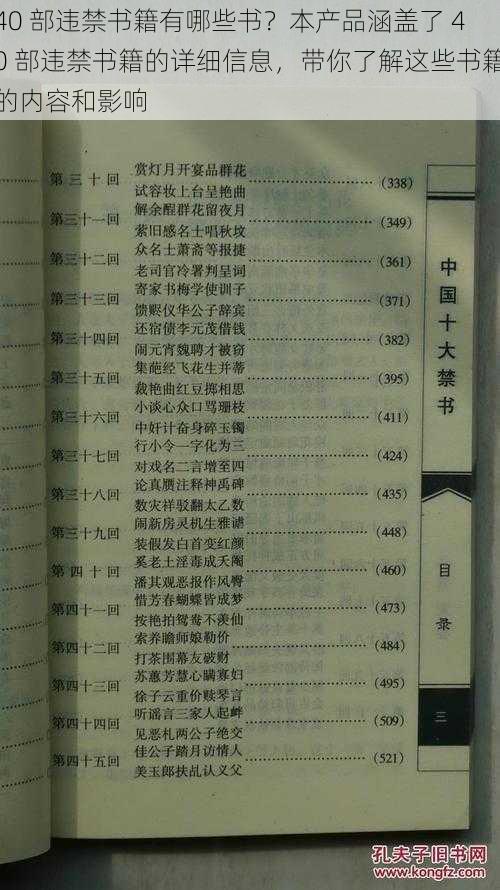 40 部违禁书籍有哪些书？本产品涵盖了 4
0 部违禁书籍的详细信息，带你了解这些书籍
的内容和影响
第三十回 赏灯月开宴品群花
试容妆上台呈艳曲 (338)
第三十一回 解余酲群花留夜月
萦旧感名士唱秋坟 (349)
第三十二回 众名士萧斋等报捷
老司官冷署判呈词 (361)
第三十三回 寄家书梅学使训子
馈赆仪华公子辞宾 (371)
第三十四回 还宿债李元茂借钱
闹元宵魏聘才被窃 (382)
第三十五回 集葩经飞花生并蒂
裁艳曲红豆掷相思 (395)
第三十六回 小谈心众口骂珊枝
中奸计奋身碎玉镯 (411)
第三十七回 行小令一字化为三
对戏名二言增至四 (424)
第三十八回 论真赝注释神禹碑
数灾祥驳翻太乙数 (435)
第三十九回 闹新房灵机生雅谑
装假发白首变红颜 (448)
第四十回 奚老土淫毒成天阉
潘其观恶报作风臀 (460)
第四十一回 惜芳春蝴蝶皆成梦
按艳拍鸳鸯不羡仙 (473)
第四十二回 索养赡师娘勒价
打茶围幕友破财 (484)
第四十三回 苏蕙芳慧心瞒寡妇
徐子云重价赎琴言 (495)
第四十四回 听谣言三家人起衅
见恶札两公子绝交 (509)
第四十五回 佳公子踏月访情人
美玉郎扶乩认义父 (521)
中国十大禁书
目录
三
孔夫子旧书网
kongfz.com